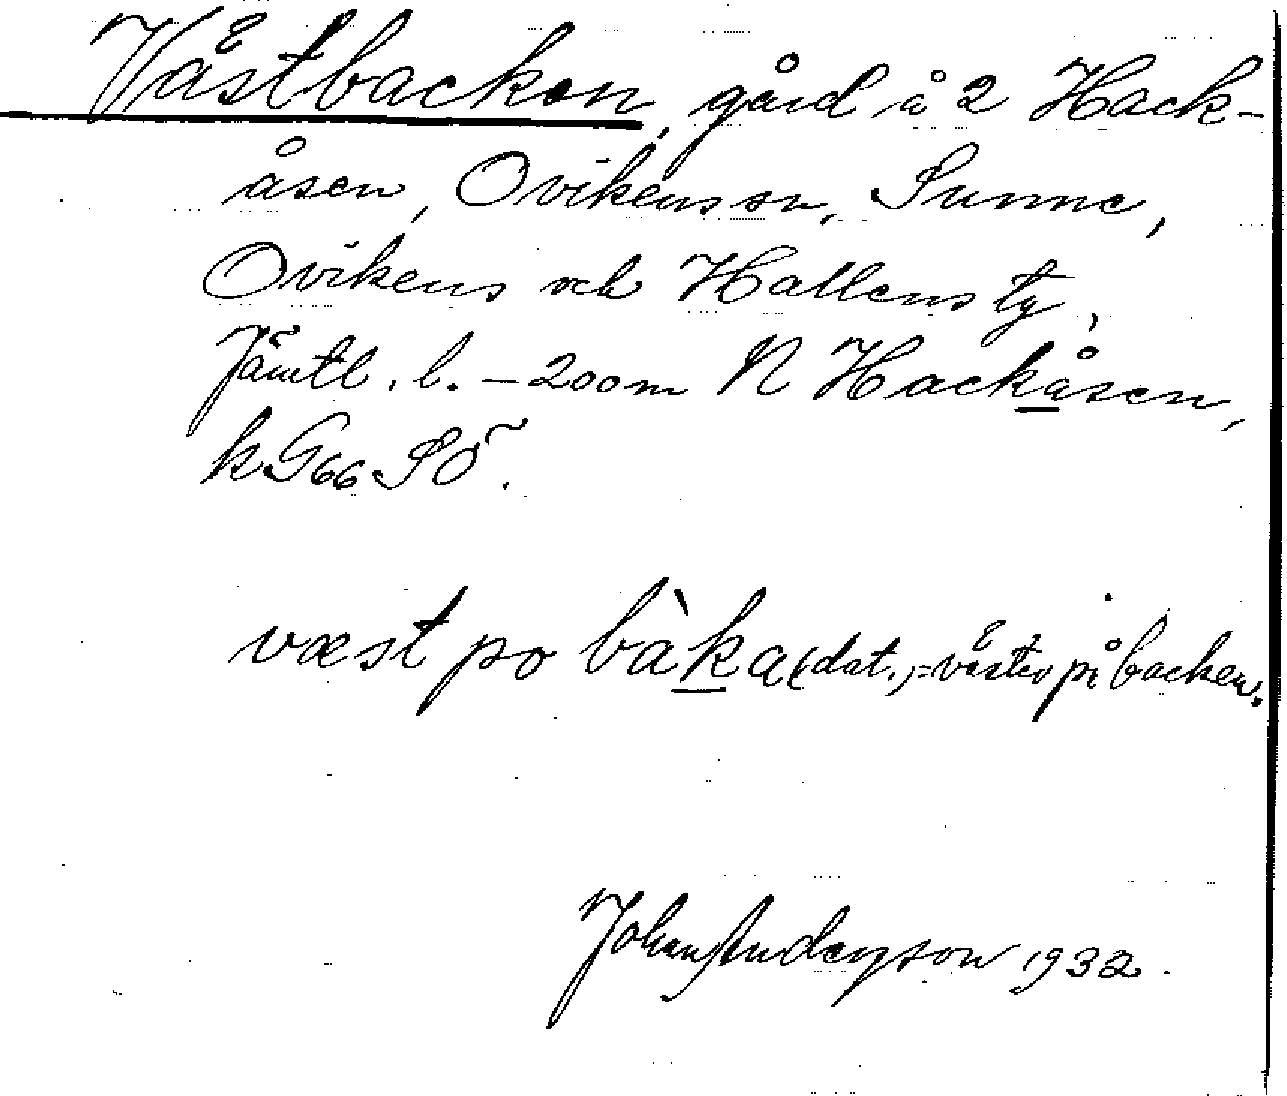 Västbacken, gård å 2 Hack-
åsen, Ovikens sn, Sunne,
Ovikens och Hallens tg,
Jämtl. l. – 200 m N Hackåsen,
k G 66 SÖ.
væst po bàka (dat.) = väster på backen.
Johan Anderson 1932.